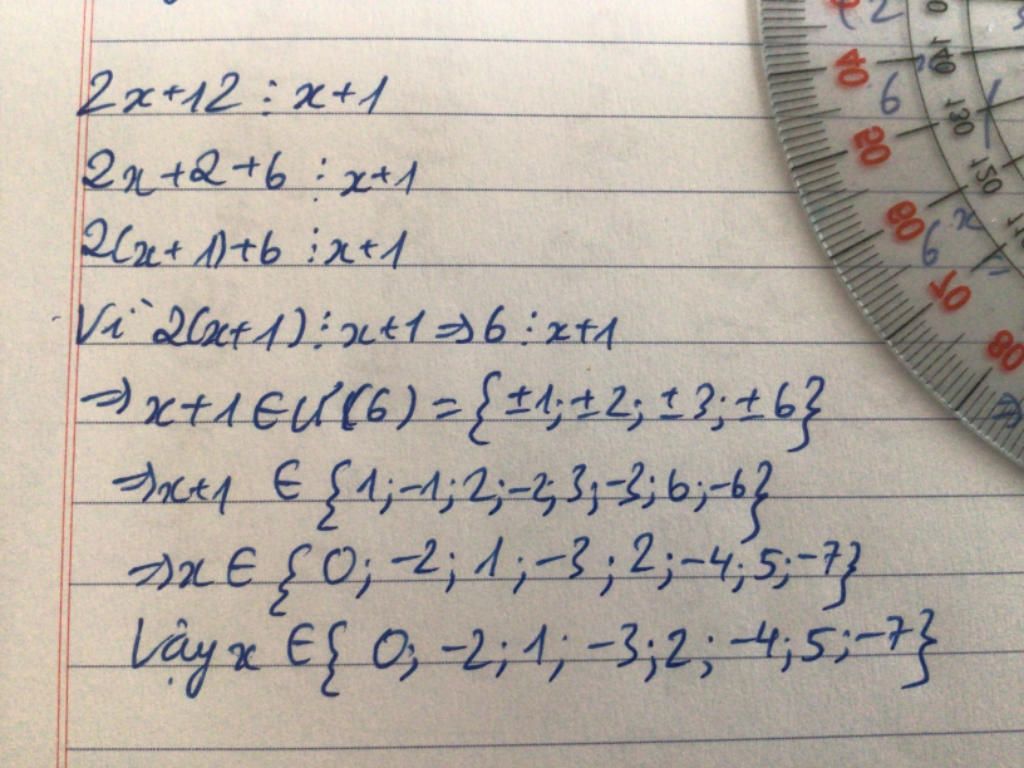 2x+12 ⋮ x+1
2x+2+6 ⋮ x+1
2(x+1)+6 ⋮ x+1
Vì 2(x+1) ⋮ x+1 ⇒ 6 ⋮ x+1
⇒ x+1 ∈ Ư(6) = {±1; ±2; ±3; ±6}
⇒ x+1 ∈ {1; -1; 2; -2; 3; -3; 6; -6}
⇒ x ∈ {0; -2; 1; -3; 2; -4; 5; -7}
Vậy x ∈ {0; -2; 1; -3; 2; -4; 5; -7}
40
50
60
70
80
140
130
120